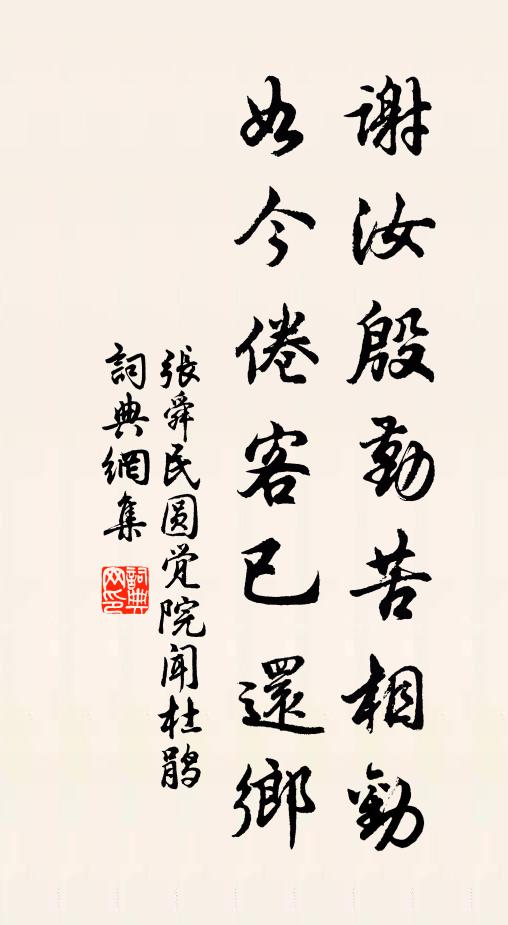 謝汝殷勤苦相勸
如今倦客已還鄉
張舜民圆觉院闻杜鹃
詞典網集
詞典網印